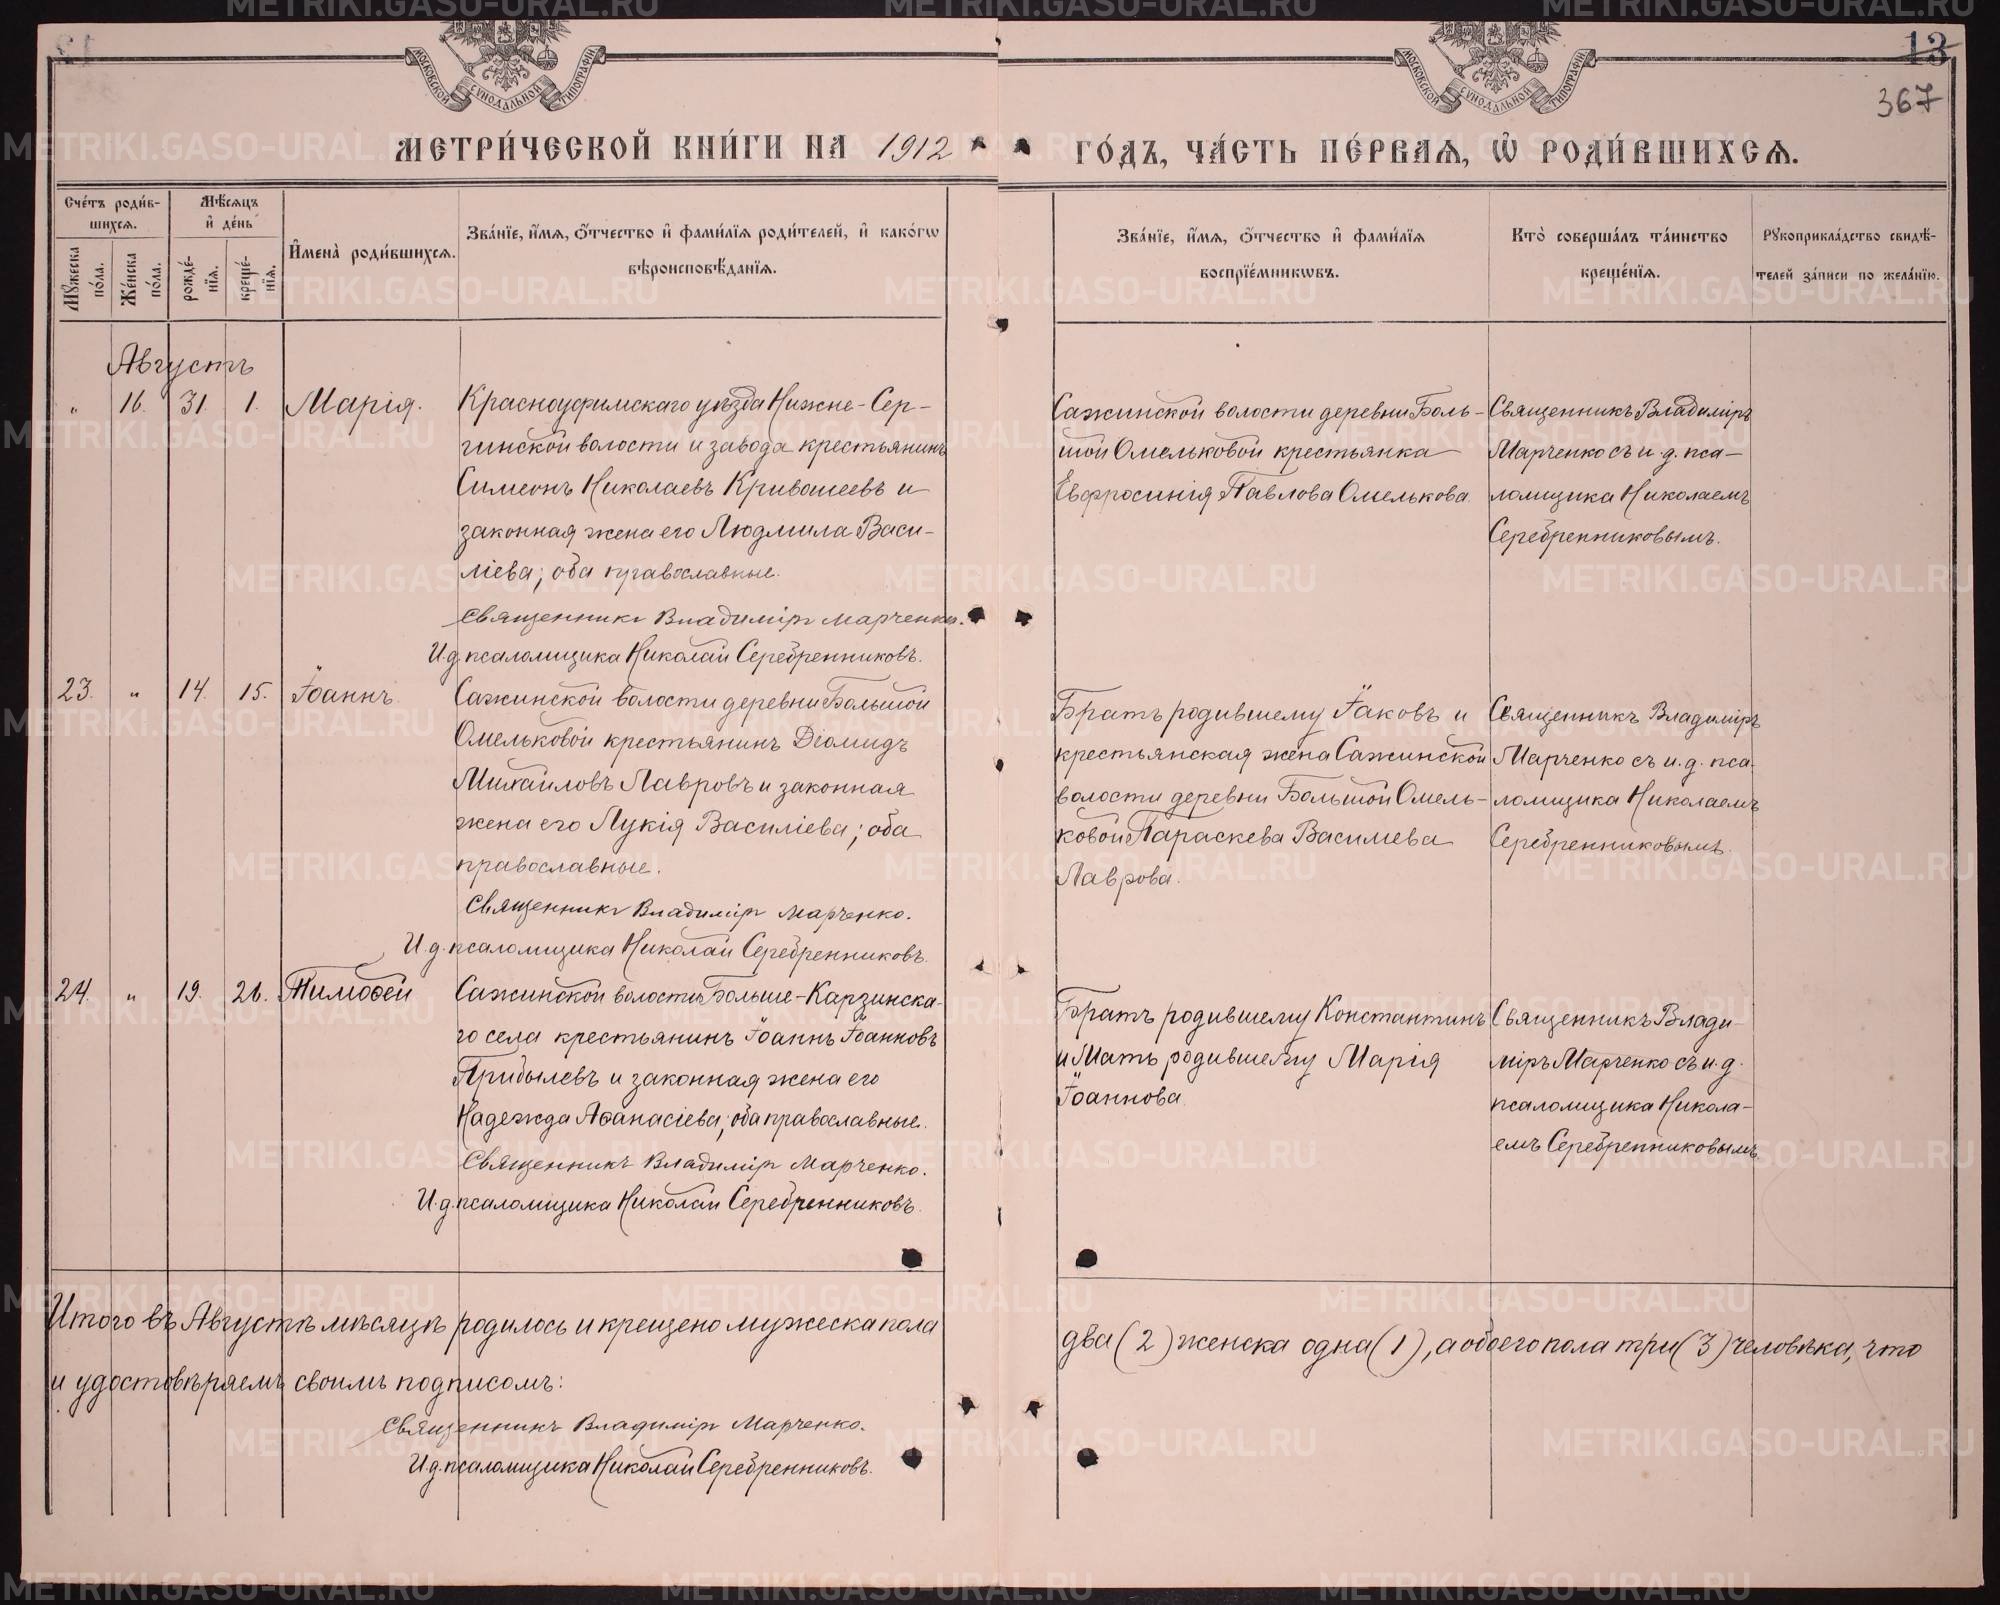 МОСКОВСКОЙ СѴНОДАЛЬНОЙ ТИПОГРАФІИ
МОСКОВСКОЙ СѴНОДАЛЬНОЙ ТИПОГРАФІИ
13
367
МЕТРИ́ЧЕСКОЙ КНИ́ГИ НА 1912
ГО́ДЪ, ЧА́СТЬ ПЕ́РВАѦ, Ѡ҆ РОДИ́ВШИХСѦ.
Сче́тъ роди́в-
шихсѧ.
Мꙋ́жеска по́ла.
Же́нска по́ла.
Мѣ́сѧцъ
и҆ де́нь
рожде́-
нїѧ.
креще́-
нїѧ.
И҆мена̀ роди́вшихсѧ.
Зва́нїе, и҆́мѧ, ѻ҆́тчество и҆ фами́лїѧ роди́телей, и҆ како́гѡ
вѣроисповѣ́данїѧ.
Зва́нїе, и҆́мѧ, ѻ҆́тчество и҆ фами́лїѧ
воспрїе́мникѡвъ.
Кто̀ соверша́лъ та́инство
креще́нїѧ.
Рꙋкоприкла́дство свидѣ́-
телей за́писи по жела́нїю.
Августъ
„ 16. 31. 1. Марія.
Красноуфимскаго уѣзда Нижне-Сер-
гинской волости и завода крестьянинъ
Симеонъ Николаевъ Кривошеевъ и
законная жена его Людмила Васи-
ліева; оба православные.
Священникъ Владиміръ Марченко.
И.д. псаломщика Николай Серебренниковъ.
Сажинской волости деревни Боль-
шой Омельковой крестьянка
Евфросинія Павлова Омелькова.
Священникъ Владиміръ
Марченко съ и.д. пса-
ломщика Николаемъ
Серебренниковымъ.
23. „ 14. 15. Іоаннъ.
Сажинской волости деревни Большой
Омельковой крестьянинъ Діомидъ
Михайловъ Лавровъ и законная
жена его Лукія Василіева; оба
православные.
Священникъ Владиміръ Марченко.
И.д. псаломщика Николай Серебренниковъ.
Братъ родившему Іаковъ и
крестьянская жена Сажинской
волости деревни Большой Омель-
ковой Параскева Василіева
Лаврова.
Священникъ Владиміръ
Марченко съ и.д. пса-
ломщика Николаемъ
Серебренниковымъ.
24. „ 19. 26. Тимоѳей
Сажинской волости Больше-Карзинска-
го села крестьянинъ Іоаннъ Іоанновъ
Прибылевъ и законная жена его
Надежда Аѳанасіева; оба православные.
Священникъ Владиміръ Марченко.
И.д. псаломщика Николай Серебренниковъ.
Братъ родившему Константинъ
и Мать родившему Марія
Іоаннова.
Священникъ Влади-
міръ Марченко съ и.д.
псаломщика Никола-
емъ Серебренниковымъ.
Итого въ Августѣ мѣсяцѣ родилось и крещено мужеска пола
два (2) женска одна (1), а обоего пола три (3) человѣка, что
и удостовѣряемъ своимъ подписомъ:
Священникъ Владиміръ Марченко.
И.д. псаломщика Николай Серебренниковъ.
METRIKI.GASO-URAL.RU